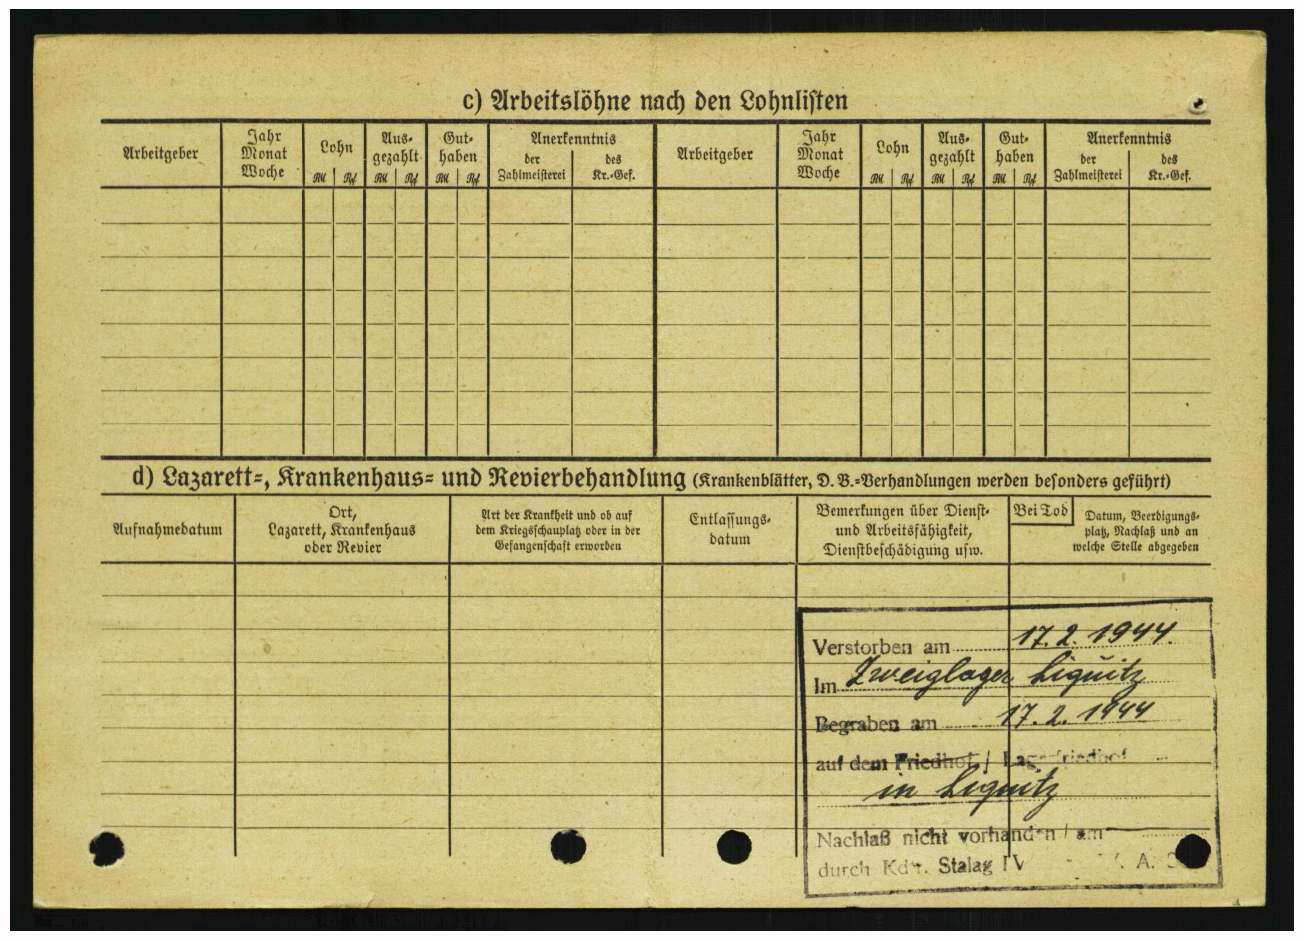 c) Arbeitslöhne nach den Lohnlisten
Arbeitgeber
Jahr
Monat
Woche
Lohn
RM Rpf
Aus-
gezahlt
RM Rpf
Gut-
haben
RM Rpf
Anerkenntnis
der
Zahlmeisterei
des
Kr.-Gef.
Arbeitgeber
Jahr
Monat
Woche
Lohn
RM Rpf
Aus-
gezahlt
RM Rpf
Gut-
haben
RM Rpf
Anerkenntnis
der
Zahlmeisterei
des
Kr.-Gef.
d) Lazarett-, Krankenhaus- und Revierbehandlung (Krankenblätter, D. B.-Verhandlungen werden besonders geführt)
Aufnahmedatum
Ort,
Lazarett, Krankenhaus
oder Revier
Art der Krankheit und ob auf
dem Kriegsschauplatz oder in der
Gefangenschaft erworden
Entlassungs-
datum
Bemerkungen über Dienst-
und Arbeitsfähigkeit,
Dienstbeschädigung usw.
Bei Tod
Datum, Beerdigungs-
platz, Nachlaß und an
welche Stelle abgegeben
Verstorben am 17.2.1944.
Im Zweiglager Liegnitz
Begraben am 17.2.1944
auf dem Friedhof / Lagerfriedhof
in Liegnitz
Nachlaß nicht vorhanden / am
durch Kdr. Stalag IV A.